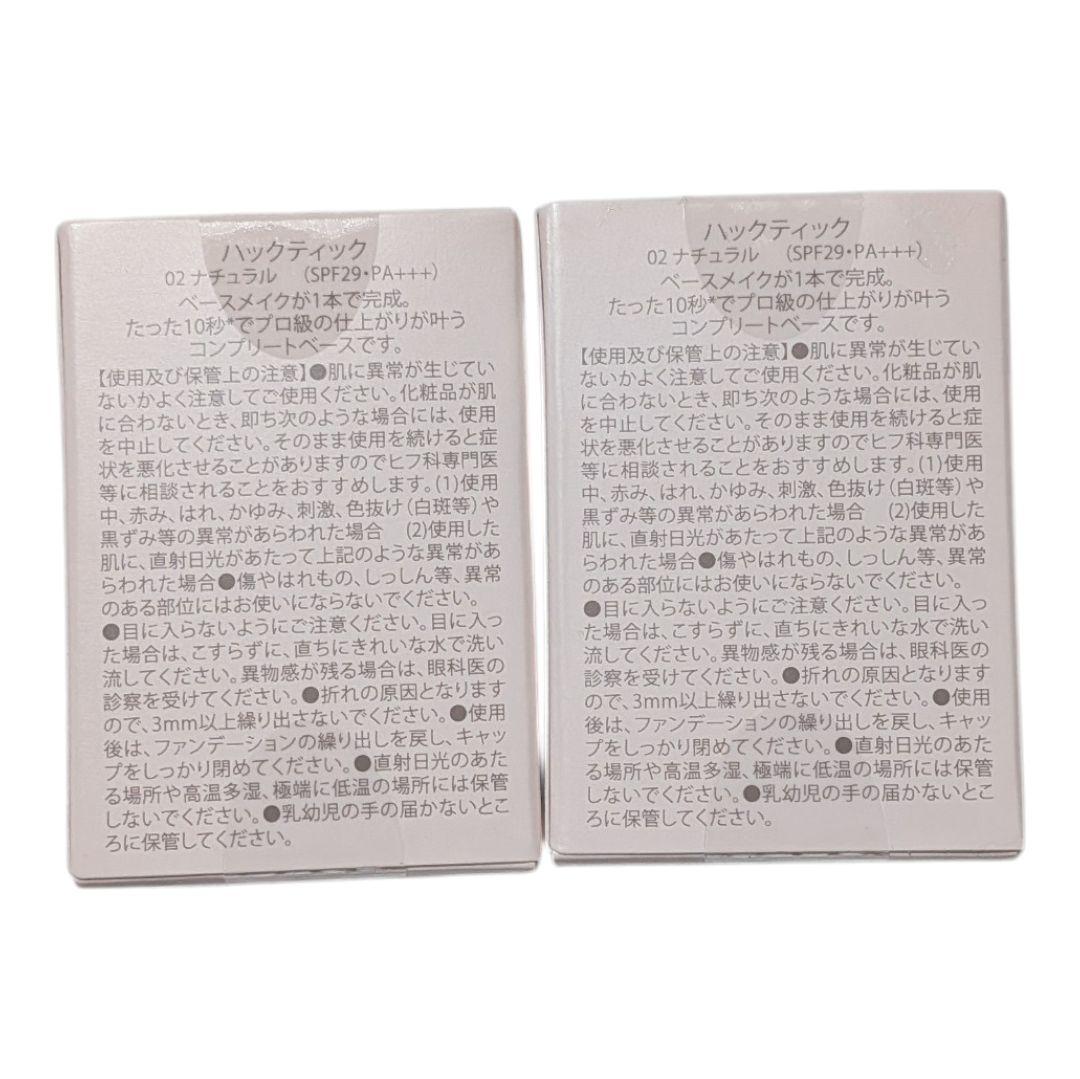 ハックティック
02 ナチュラル （SPF29・PA+++）
ベースメイクが1本で完成。
たった10秒*でプロ級の仕上がりが叶う
コンプリートベースです。
【使用及び保管上の注意】●肌に異常が生じてい
ないかよく注意してご使用ください。化粧品が肌
に合わないとき、即ち次のような場合には、使用
を中止してください。そのまま使用を続けると症
状を悪化させることがありますのでヒフ科専門医
等に相談されることをおすすめします。(1)使用
中、赤み、はれ、かゆみ、刺激、色抜け（白斑等）や
黒ずみ等の異常があらわれた場合 (2)使用した
肌に、直射日光があたって上記のような異常があ
らわれた場合●傷やはれもの、しっしん等、異常
のある部位にはお使いにならないでください。
●目に入らないようにご注意ください。目に入っ
た場合は、こすらずに、直ちにきれいな水で洗い
流してください。異物感が残る場合は、眼科医の
診察を受けてください。●折れの原因となります
ので、3mm以上繰り出さないでください。●使用
後は、ファンデーションの繰り出しを戻し、キャッ
プをしっかり閉めてください。●直射日光のあた
る場所や高温多湿、極端に低温の場所には保管
しないでください。●乳幼児の手の届かないとこ
ろに保管してください。
ハックティック
02 ナチュラル （SPF29・PA+++）
ベースメイクが1本で完成。
たった10秒*でプロ級の仕上がりが叶う
コンプリートベースです。
【使用及び保管上の注意】●肌に異常が生じてい
ないかよく注意してご使用ください。化粧品が肌
に合わないとき、即ち次のような場合には、使用
を中止してください。そのまま使用を続けると症
状を悪化させることがありますのでヒフ科専門医
等に相談されることをおすすめします。(1)使用
中、赤み、はれ、かゆみ、刺激、色抜け（白斑等）や
黒ずみ等の異常があらわれた場合 (2)使用した
肌に、直射日光があたって上記のような異常があ
らわれた場合●傷やはれもの、しっしん等、異常
のある部位にはお使いにならないでください。
●目に入らないようにご注意ください。目に入っ
た場合は、こすらずに、直ちにきれいな水で洗い
流してください。異物感が残る場合は、眼科医の
診察を受けてください。●折れの原因となります
ので、3mm以上繰り出さないでください。●使用
後は、ファンデーションの繰り出しを戻し、キャッ
プをしっかり閉めてください。●直射日光のあた
る場所や高温多湿、極端に低温の場所には保管
しないでください。●乳幼児の手の届かないとこ
ろに保管してください。